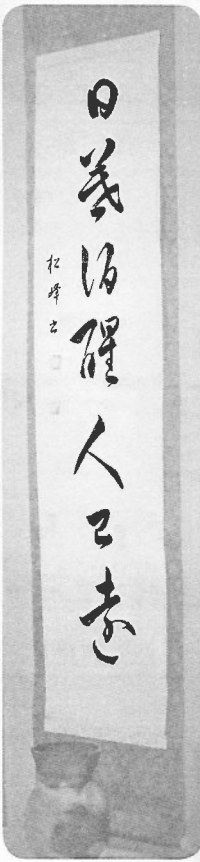 日暮酒醒人已遠
松峰書